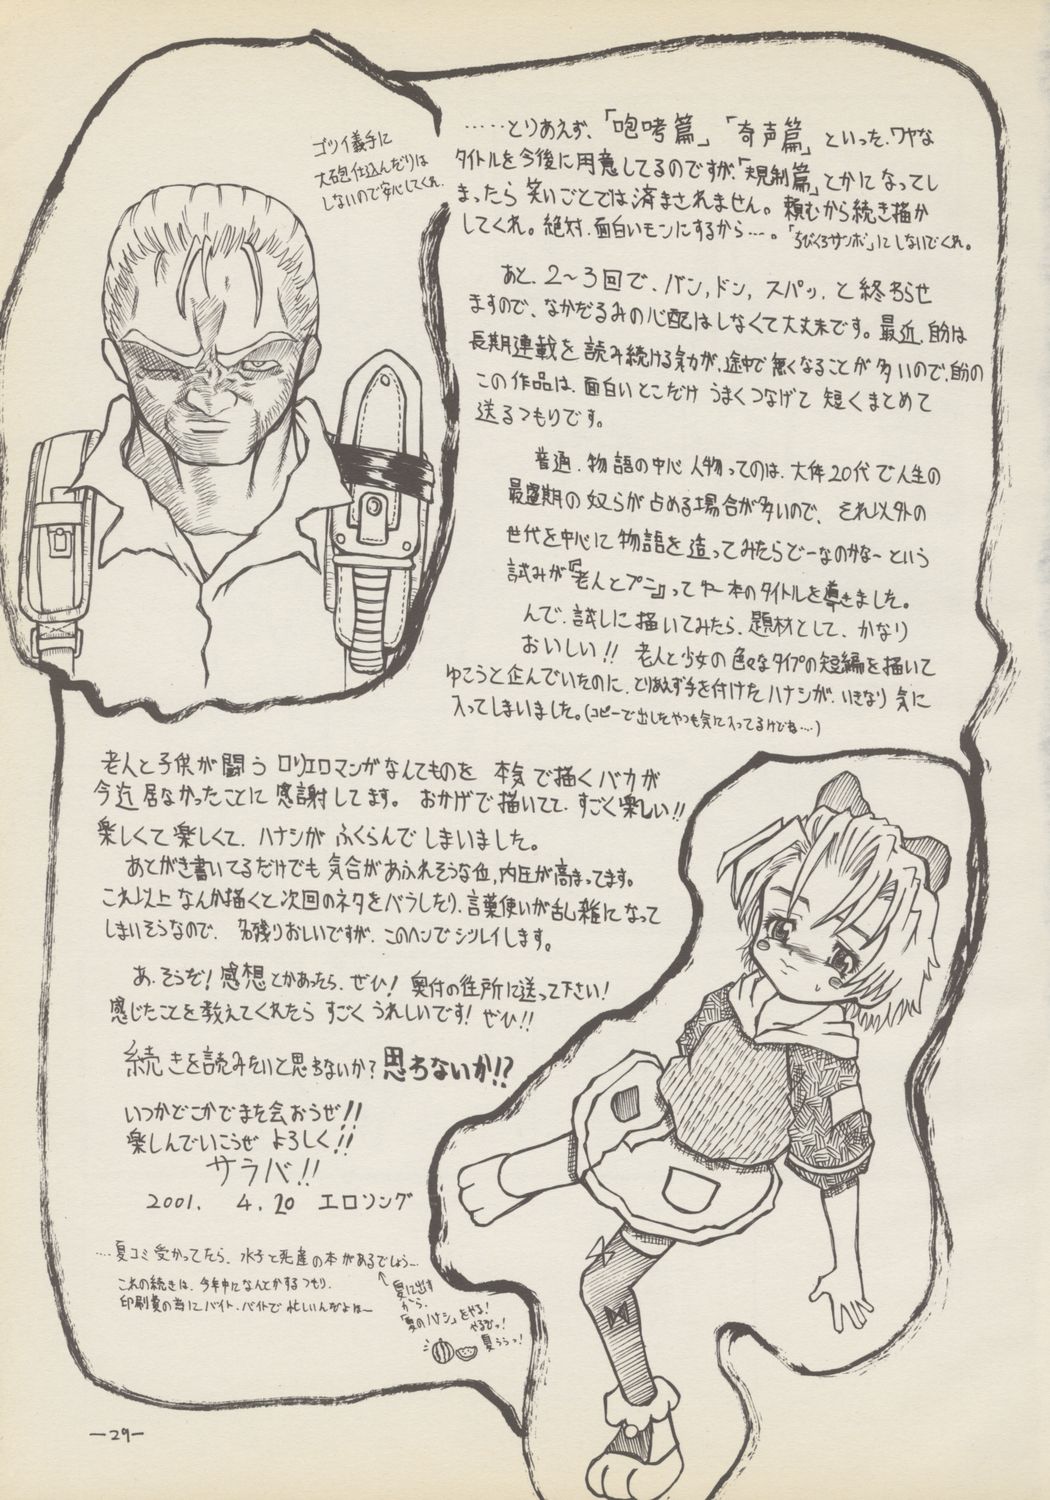 ゴツイ義手に
大砲仕込んだりは
しないので安心してくれ.
……とりあえず、「咆哮篇」「奇声篇」といった、ワヤな
タイトルを今後に用意してるのですが、「規制篇」とかになってし
まったら笑いごとでは済まされません。頼むから続き描か
してくれ。絶対、面白いモンにするから…。「ちびくろサンボ」にしないでくれ。
あと、2～3回で、バン,ドン,スパッ,と終わらせ
ますので、なかだるみの心配はしなくて大丈夫です。最近、自分は
長期連載を読み続ける気力が、途中で無くなることが多いので、自分の
この作品は、面白いとこだけうまくつなげて短くまとめて
送るつもりです。
普通、物語の中心人物ってのは、大体20代で人生の
最盛期の奴らが占める場合が多いので、それ以外の
世代を中心に物語を造ってみたらどーなのかな～という
試みが『老人とプニ』って本のタイトルを導きました。
んで、試しに描いてみたら、題材として、かなり
おいしい!! 老人と少女の色々なタイプの短編を描いて
ゆこうと企んでいたのに、とりあえず手を付けたハナシが、いきなり気に
入ってしまいました。(コピーで出したやつも気に入ってるけどね…)
老人と子供が闘うロリエロマンガなんてものを本気で描くバカが
今迄居なかったことに感謝してます。おかげで描いてて、すごく楽しい!!
楽しくて楽しくて、ハナシがふくらんでしまいました。
あとがき書いてるだけでも気合があふれそうな位,内圧が高まってます。
これ以上なんか描くと次回のネタをバラしたり、言葉使いが乱雑になって
しまいそうなので、名残りおしいですが、このヘンでシツレイします。
あ、そうだ!感想とかあったら、ぜひ!奥付の住所に送って下さい!
感じたことを教えてくれたらすごくうれしいです!ぜひ!!
続きを読みたいと思わないか?思わないか!?
いつかどこかでまた会おうぜ!!
楽しんでいこうぜ よろしく!!
サラバ!!
2001. 4.20 エロソング
…夏コミ受かってたら、水子と死産の本があるでしょう…
これの続きは、今年中になんとかするつもり.
印刷費の為にバイト、バイトで忙しいんだよね～
夏に出す
から、
「夏のハナシ」をやる!
やるぜっ!
夏ぅぅっ!
—29—